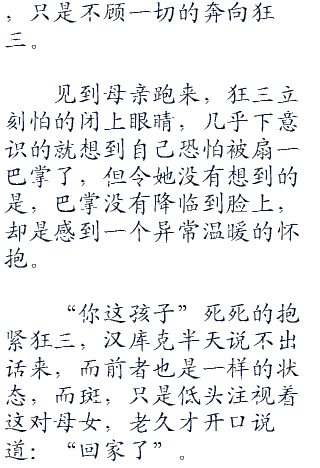 ，只是不顾一切的奔向狂
三。
见到母亲跑来，狂三立
刻怕的闭上眼睛，几乎下意
识的就想到自己恐怕被扇一
巴掌了，但令她没有想到的
是，巴掌没有降临到脸上，
却是感到一个异常温暖的怀
抱。
“你这孩子”死死的抱
紧狂三，汉库克半天说不出
话来，而前者也是一样的状
态，而斑，只是低头注视着
这对母女，老久才开口说
道：“回家了”。